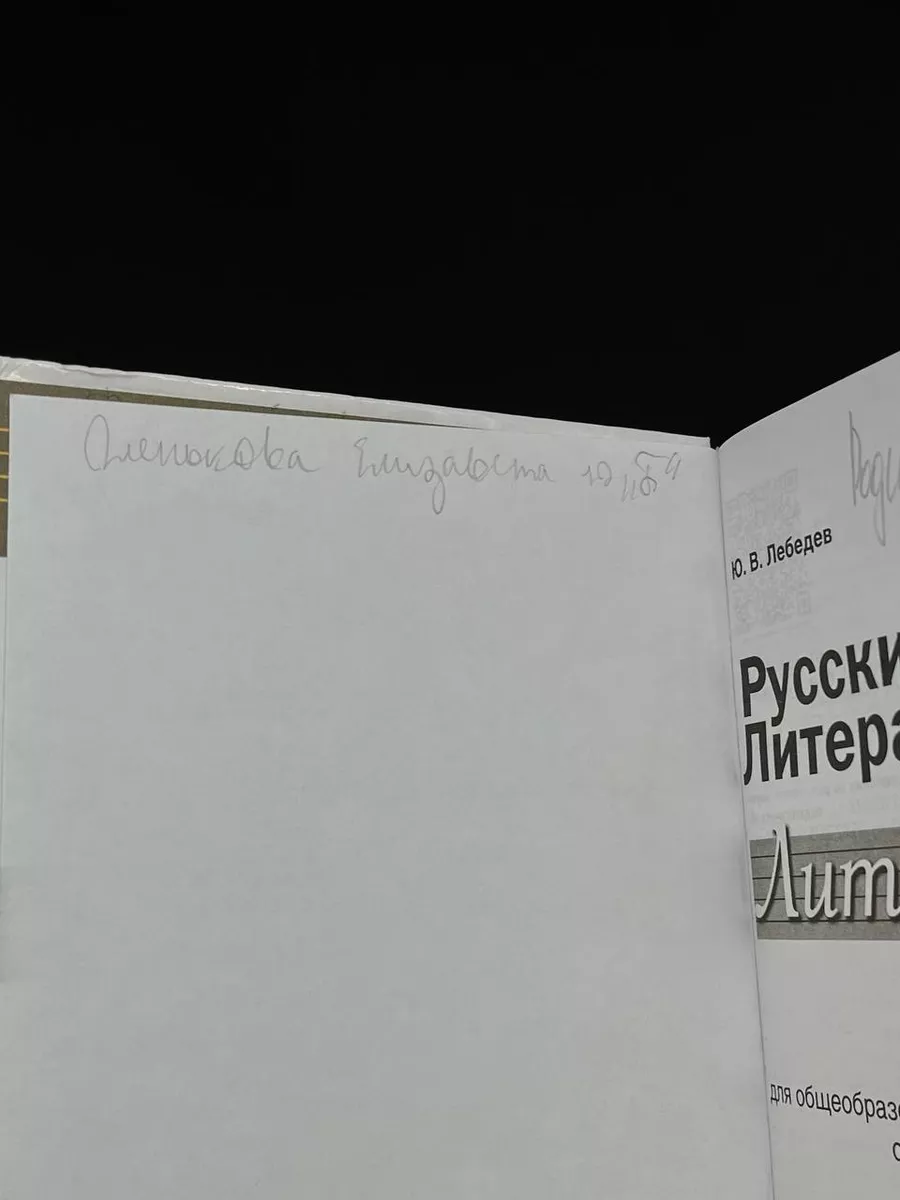 Оленькова Елизавета 10 „Б“
Ю. В. Лебедев
Русски
Литера
Лит
для общеобразо
с